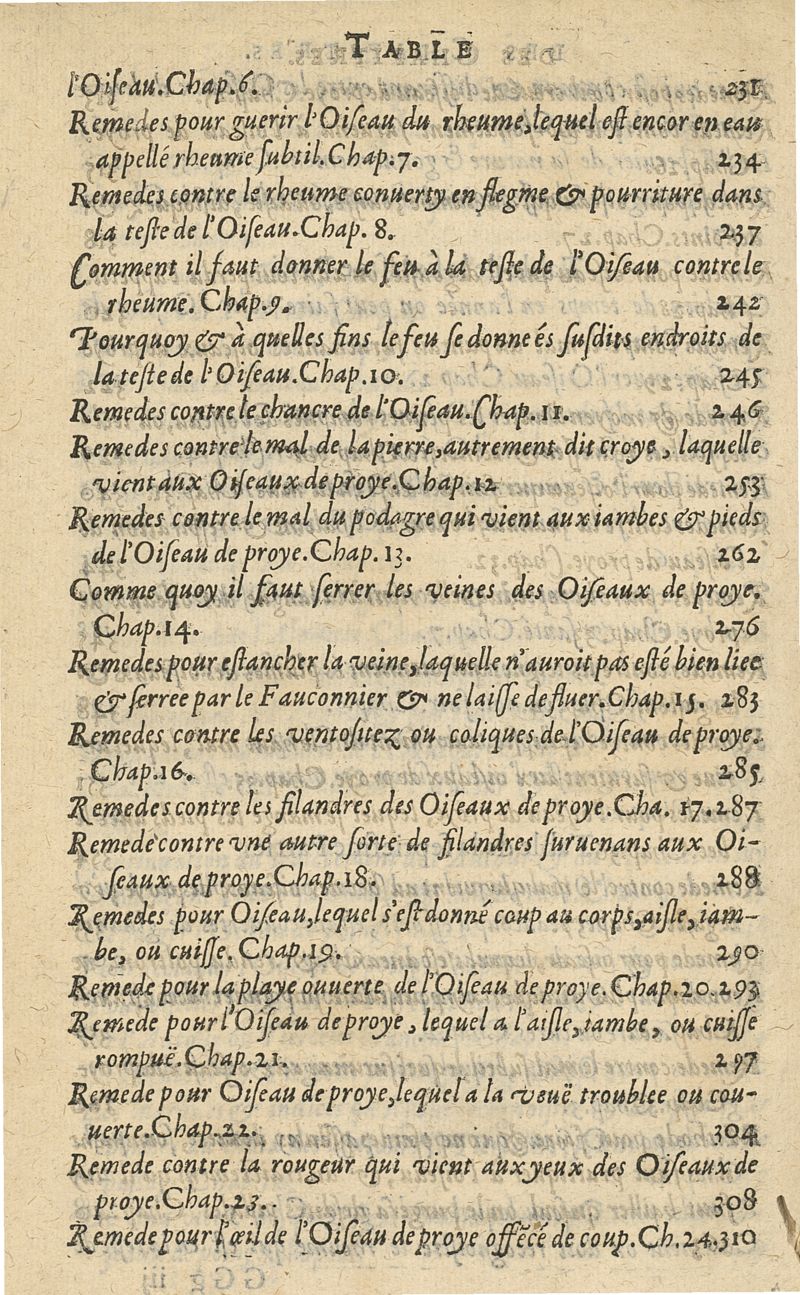 TABLE
l'Oiſeau.Chap.6. 231
Remedes pour guerir l'Oiſeau du rheume,lequel eſt encor en eau
appellé rheume ſubtil.Chap.7. 234
Remedes contre le rheume conuerty en flegme & pourriture dans
la teſte de l'Oiſeau.Chap. 8. 237
Comment il faut donner le feu à la teſte de l'Oiſeau contre le
rheume. Chap.9. 242
Pourquoy & à quelles fins le feu ſe donne és ſuſdits endroits de
la teſte de l'Oiſeau.Chap.10. 245
Remedes contre le chancre de l'Oiſeau.Chap.11. 246
Remedes contre le mal de la pierre,autrement dit croye, laquelle
vient aux Oiſeaux de proye.Chap.12 253
Remedes contre le mal du podagre qui vient aux iambes & pieds
de l'Oiſeau de proye.Chap.13. 262
Comme quoy il faut ſerrer les veines des Oiſeaux de proye.
Chap.14. 276
Remedes pour eſtancher la veine,laquelle n'auroit pas eſté bien liee
& ſerree par le Fauconnier & ne laiſſe de fluer.Chap.15. 283
Remedes contre les ventoſitez ou coliques de l'Oiſeau de proye.
Chap.16. 285
Remedes contre les filandres des Oiſeaux de proye.Cha. 17.287
Remede contre vne autre ſorte de filandres ſuruenans aux Oi-
ſeaux de proye.Chap.18. 288
Remedes pour Oiſeau,lequel s'eſt donné coup au corps,aiſle,iam-
be, ou cuiſſe. Chap.19. 290
Remede pour la playe ouuerte de l'Oiſeau de proye. Chap.20.293
Remede pour l'Oiſeau de proye, lequel a l'aiſle, iambe, ou cuiſſe
rompuë.Chap.21. 297
Remede pour Oiſeau de proye,lequel a la veuë troublee ou cou-
uerte.Chap.22. 304
Remede contre la rougeur qui vient aux yeux des Oiſeaux de
proye.Chap.23. 308
Remede pour l'œil de l'Oiſeau de proye offẽcé de coup.Ch.24.310